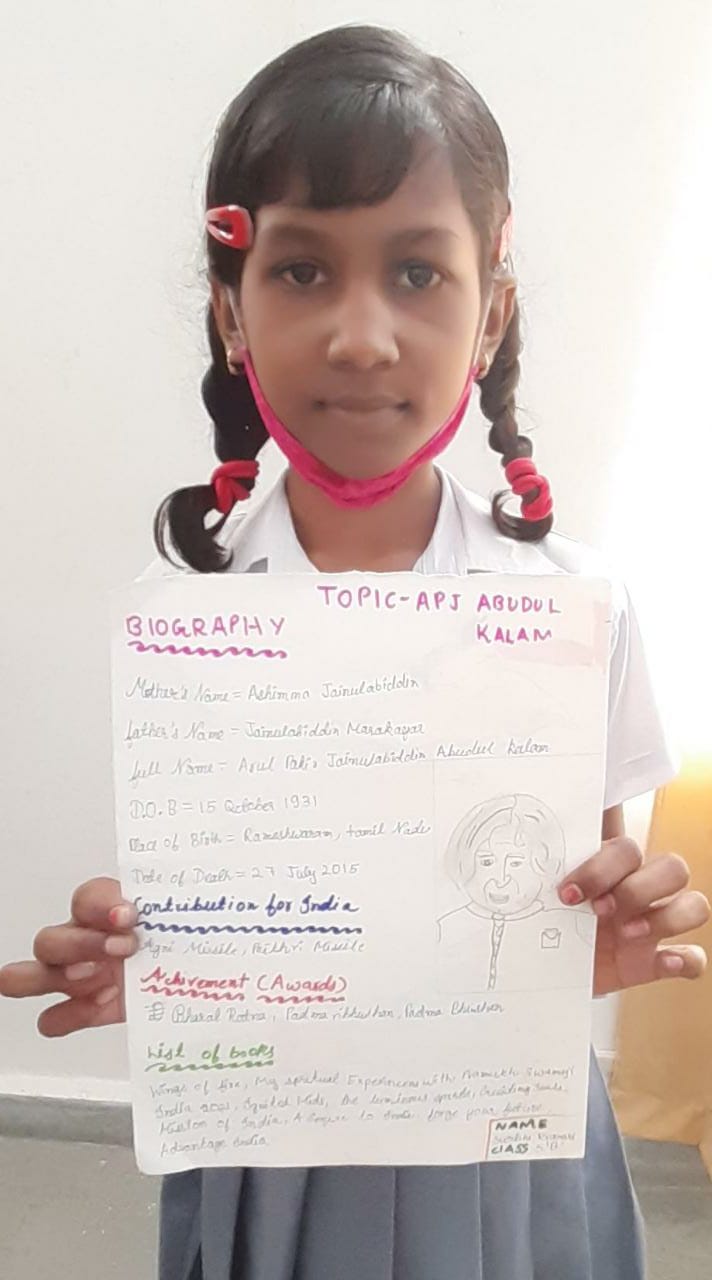 TOPIC-APJ ABUDUL
KALAM
BIOGRAPHY
Mother's Name = Ashimma Jainulabiddin
father's Name = Jainulabiddin Marakayar
full Name = Avul Pakir Jainulabiddin Abudul Kalam
D.O.B = 15 October 1931
Place of Birth = Rameshwaram, tamil Nadu
Date of Death = 27 July 2015
Contribution for India
Agni Missile, Prithri Missile
Achivement (Awards)
Bharat Ratna, Padma ribhushan, Padma Bhushan
List of books
Wings of fire, My spiritual Experiences with Pramukh Swamiji
India 2020, Ignited Minds, the luminous sparks,
Mission of India, A to India, forge your future
Advantage India
NAME
Kumari
CLASS 5'B'